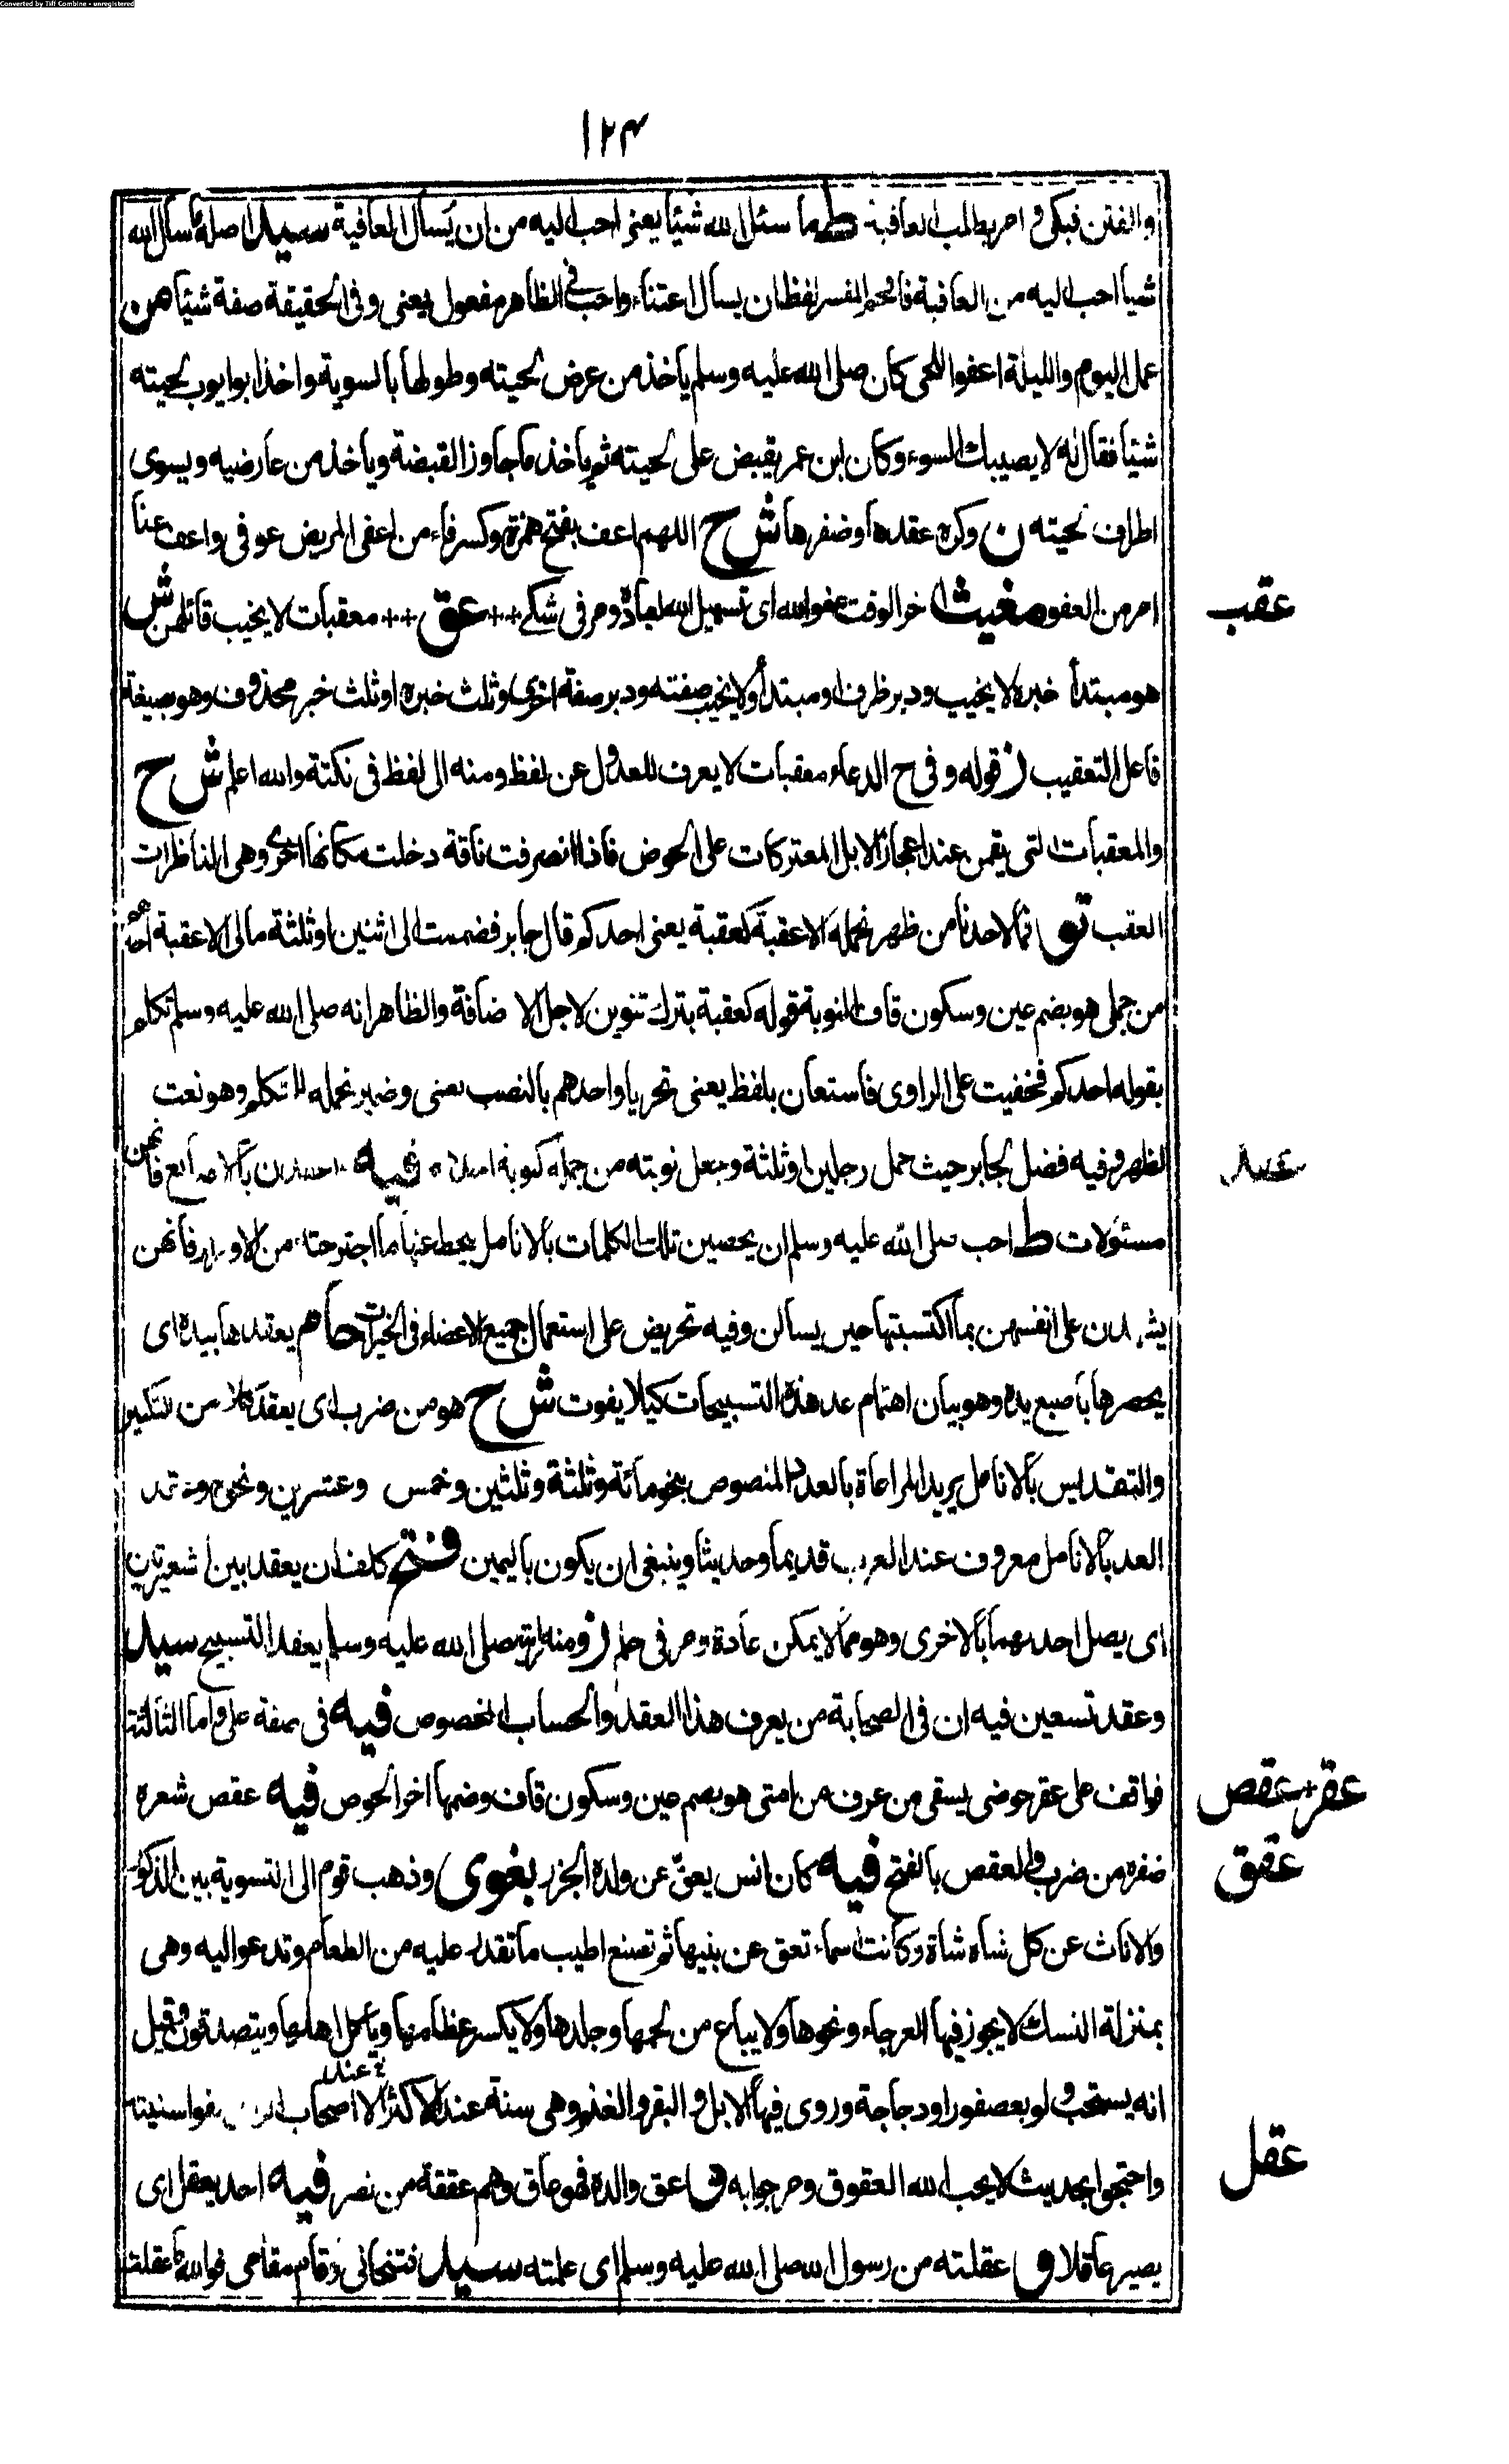 Converted by Tiff Combine - unregistered
١٢٤
والفتن فبكى و امر بطلب العافية ط ما سئل الله شيئا يعنى احب اليه من ان يسأل العافية سيد اصله ما سأل الله
شيأ احب اليه من العافية فاقحم المفسر لفظ ان يسأل اعتناء واحب فى الظاهر مفعول يعنى وفى الحقيقة صفة شيئا هن
عمل اليوم والليلة اعفوا اللحى كان صلى الله عليه وسلم يأخذ من عرض لحيته وطولها بالسوية واخذ ابو ايوب لحيته
شيئا فقال له لا يصيبك السوء وكان ابن عمر يقبض على لحيته ثم يأخذ ما جاوز القبضة ويأخذ من عارضيه ويسوى
اطراف لحيته ن وكره عقدها وضفرها ش ح اللهم اعف بفتح همزة وكسر فاء من اعفى المريض عوفى واعف عنا
امر من العفو مغيث اخر الوقت عفو الله اى تسهيل الله لعباده ومر فى شكى ++ عق ++ معقبات لا يخيب قائلهن ش
عقب
هو مبتدأ خبره لا يخيب ودبر ظرف او مبتدأ ولا يخيب صفته ودبر صفة اخرى وثلث خبره او ثلث خبر محذوف وهو صيغة
فاعل التعقيب ز قوله وفى ح الدعاء معقبات لا يعرف للعدول عن لفظ ومنه الى لفظ فى نكتة والله اعلم ش ح
والمعقبات التى يقمن عند اعجاز الابل المعتركات على الحوض فاذا انصرفت ناقة دخلت مكانها اخرى وهى المناظرات
العقب تو فما لاحدنا من ظهر نحمله الا عقبة كعقبة يعنى احدكم قال جابر فضممت الى اثنين او ثلثة ما لى الا عقبة احدهم
من جملى هو بضم عين وسكون قاف النوبة قوله كعقبة بترك تنوين لاجل الاضافة والظاهر انه صلى الله عليه وسلم تكلم
بقوله احدكم فخفيت على الراوى فاستعان بلفظ يعنى تحريا واحدهم بالنصب يعنى وضمير نحمله للمتكلم وهو نعت
لظهر وفيه فضل لجابر حيث حمل رجلين او ثلثة وجعل نوبته من جمله كنوبة فيه بالاصابع فانهن
عقد
مسئولات ط احب صلى الله عليه وسلم ان يحصين تلك الكلمات بالانامل ليحط عنها ما اجترحته من الاوزار فانهن
يشهدن على انفسهن بما اكتسبتها حين يسألن وفيه تحريض على استعمال جميع الاعضاء فى الخيرات حا هم يعقدها بيده اى
يحصرها باصبع يده وهو بيان اهتمام عد هذه التسبيحات كيلا يفوت ش ح هو من ضرب اى يعقد كلا من التكبير
والتقديس بالانامل يريد المراعاة بالعدد المنصوص بنحو مائة وثلثة وثلثين وخمس وعشرين ونحوه
العد بالانامل معروف عند العرب قديما وحديثا وينبغى ان يكون باليمين فتح كلف ان يعقد بين شعيرتين
اى يصل احدهما بالاخرى وهو مما لا يمكن عادة ومر فى حلم ز ومنه رأيته صلى الله عليه وسلم يعقد التسبيح سيد
وعقد تسعين فيه ان فى الصحابة من يعرف هذا العقد والحساب المخصوص فيه فى صفة على واما الثالثة
فواقف على عقر حوضى يسقى من عرف من امتى هو بضم عين وسكون قاف وضمها اخر الحوض فيه عقص شعره
عقر+عقص
ضفره من ضرب والعقص بالفتح فيه كان انس يعق عن ولده الجزر بغوى وذهب قوم الى التسوية بين الذكور
عقق
والاناث عن كل شاة شاة وكانت اسماء تعق عن بنيها ثم تصنع اطيب ما تقدر عليه من الطعام وتدعو اليه وهى
بمنزلة النسك لا يجوز فيها العرجاء ونحوها ولا يباع من لحمها وجلدها ولا يكسر عظامها ويأكل اهلها ويتصدقون وقيل
انه يستحب ولو بعصفور او دجاجة وروى فيها الابل والبقر والغنم وهى سنة عند الاكثر الا عند اصحاب
واحتجوا بحديث لا يحب الله العقوق ومر جوابه ق اعق والده فهو عاق وهم عققة من نصر فيه احد يعقل اى
عقل
بصير عاقلا ق عقلته من رسول الله صلى الله عليه وسلم اى علمته سيد فتنحانى وقام مقامى فوالله ما عقلت